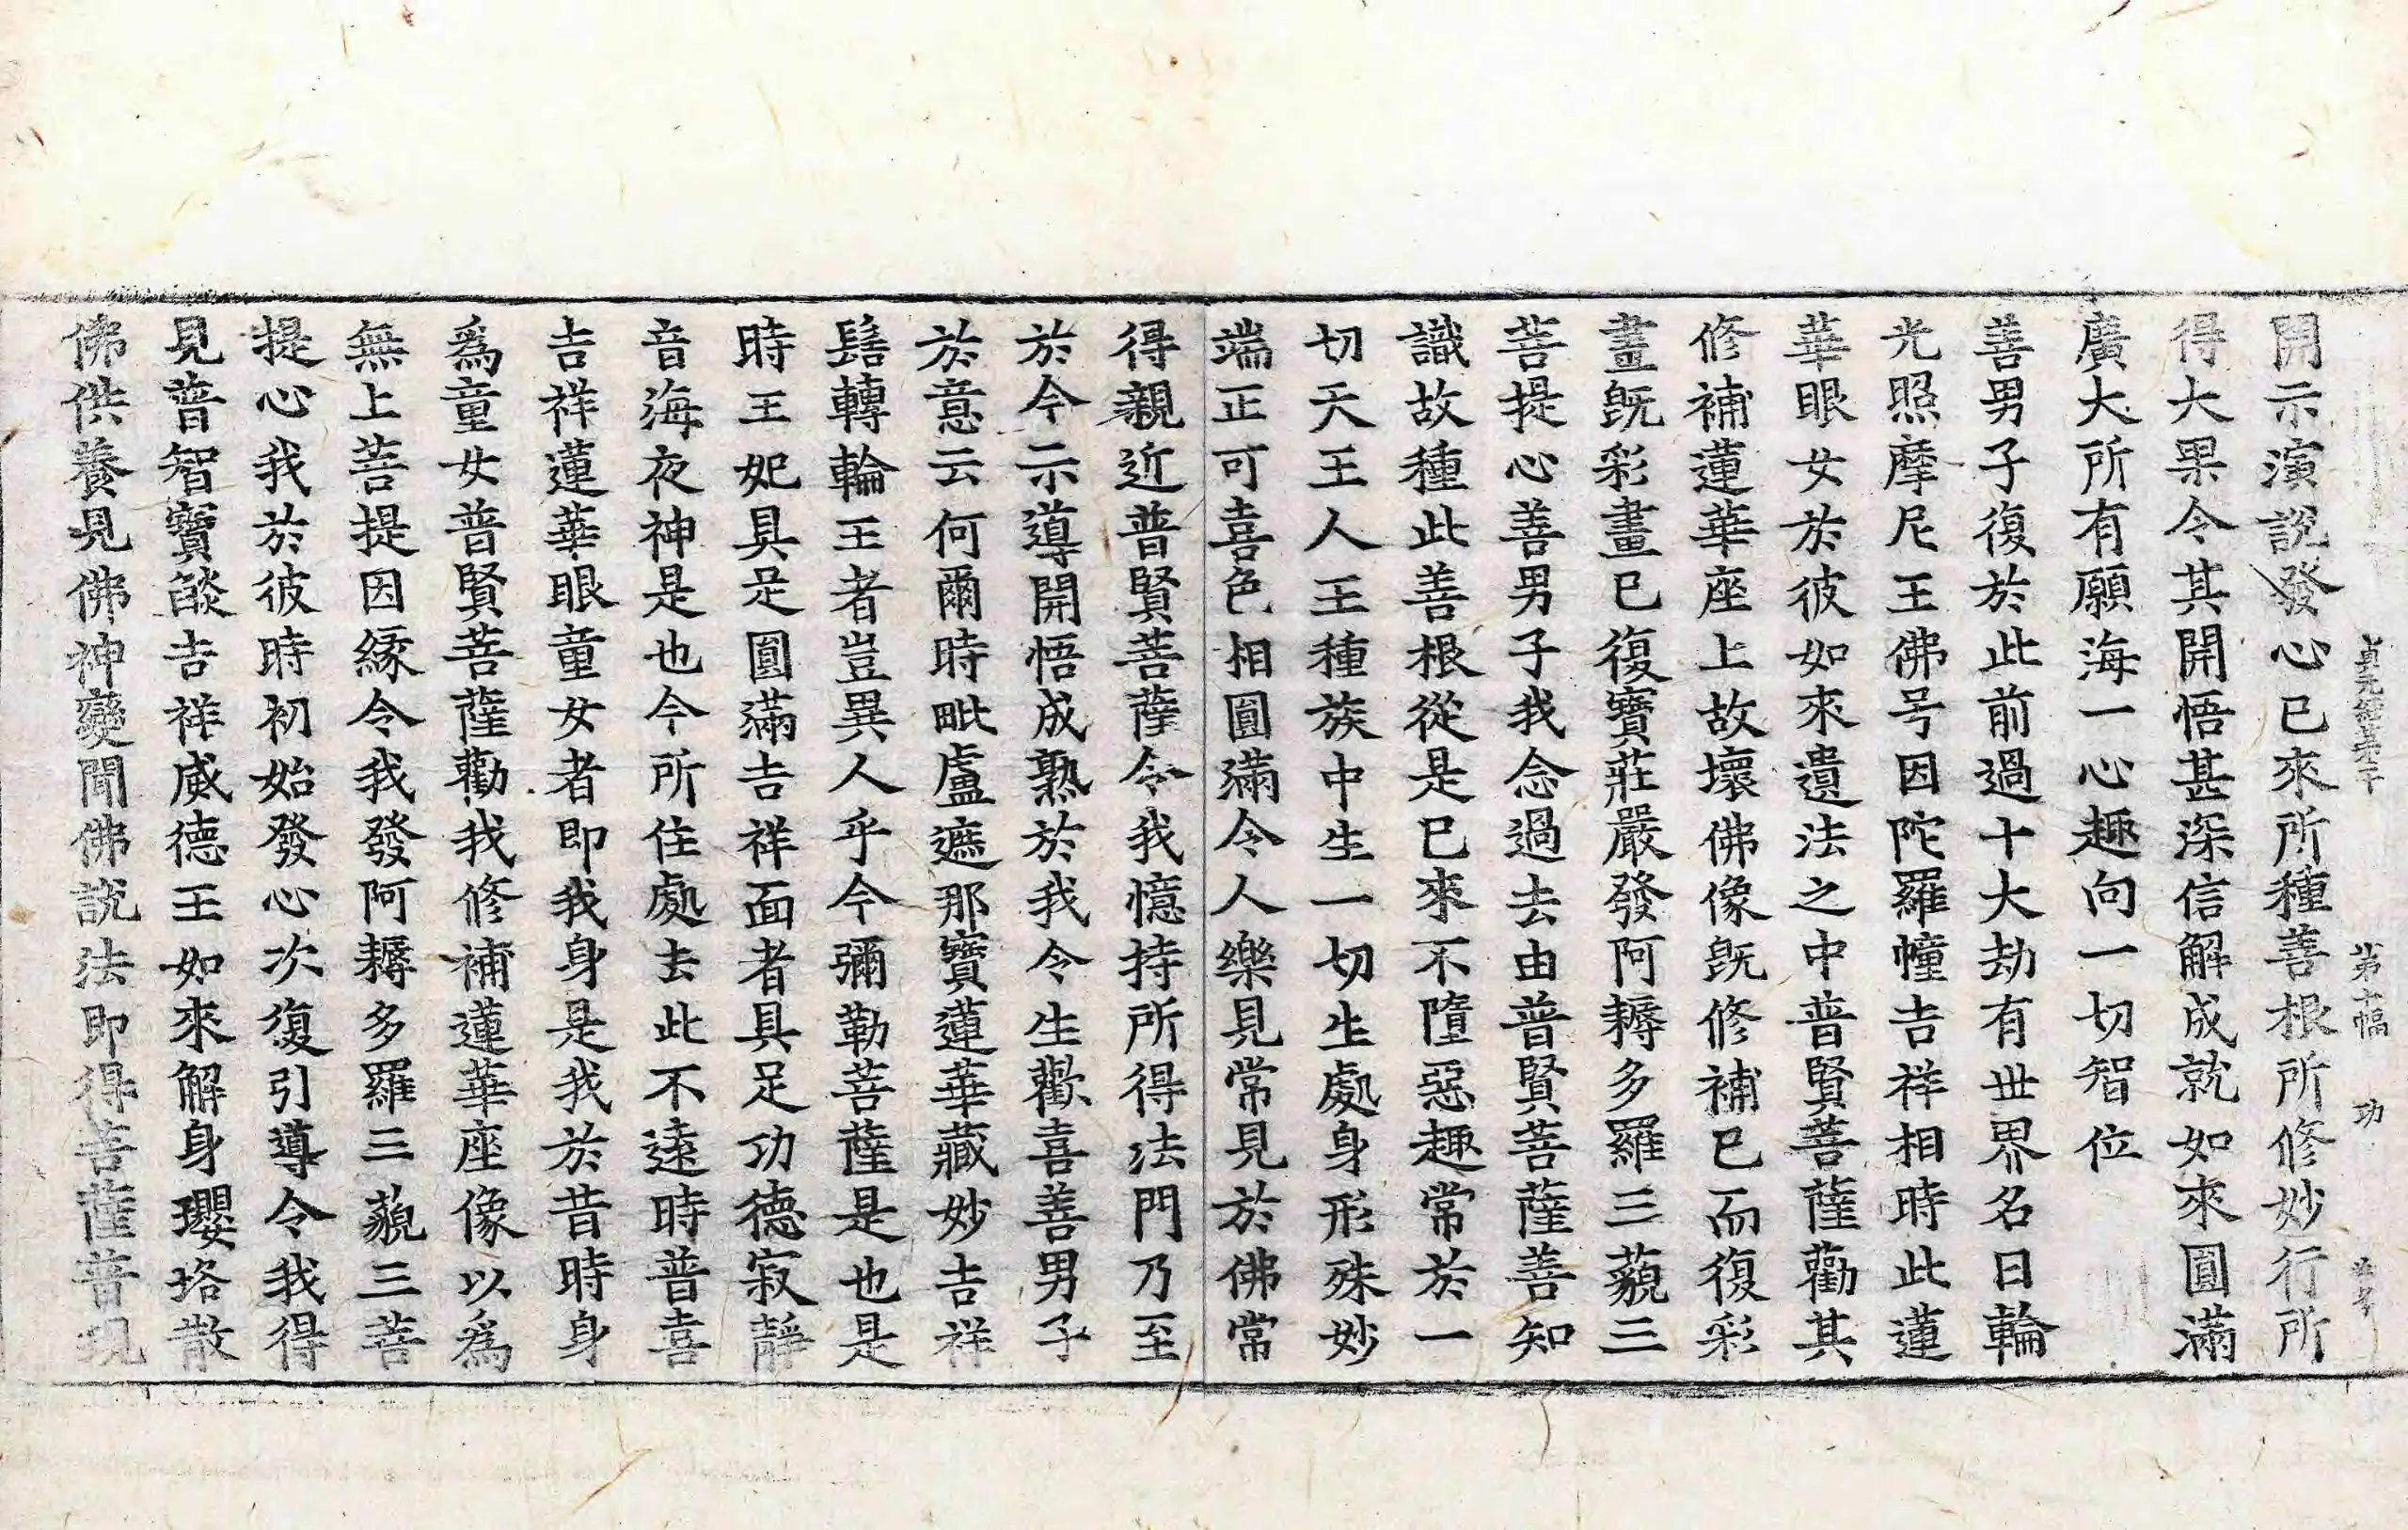 貞元經第二十 第十六幅 功
開示演說發心已來所種善根所修妙行所
得大果令其開悟甚深信解成就如來圓滿
廣大所有願海一心趣向一切智位
善男子復於此前過十大劫有世界名日輪
光照摩尼王佛号因陀羅幢吉祥相時此蓮
華眼女於彼如來遺法之中普賢菩薩勸其
修補蓮華座上故壞佛像旣修補已而復彩
畫旣彩畫已復寶莊嚴發阿耨多羅三藐三
菩提心善男子我念過去由普賢菩薩善知
識故種此善根從是已來不墮惡趣常於一
切天王人王種族中生一切生處身形殊妙
端正可喜色相圓滿令人樂見常見於佛常
得親近普賢菩薩令我憶持所得法門乃至
於今示導開悟成熟於我令生歡喜善男子
於意云何爾時毗盧遮那寶蓮華藏妙吉祥
髻轉輪王者豈異人乎今彌勒菩薩是也是
時王妃具足圓滿吉祥面者具足功德寂靜
音海夜神是也今所住處去此不遠時普喜
吉祥蓮華眼童女者即我身是我於昔時身
爲童女普賢菩薩勸我修補蓮華座像以爲
無上菩提因緣令我發阿耨多羅三藐三菩
提心我於彼時初始發心次復引導令我得
見普智寶燄吉祥威德王如來解身瓔珞散
佛供養見佛神變聞佛說法即得菩薩普現